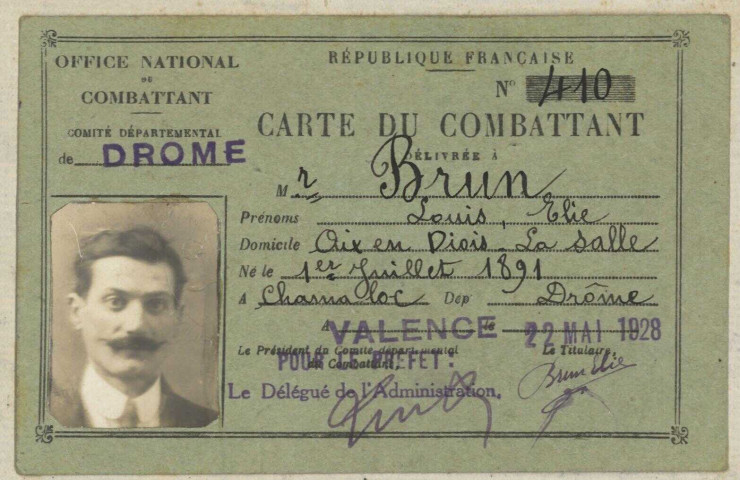 OFFICE NATIONAL
DU
COMBATTANT
COMITÉ DÉPARTEMENTAL
de DROME
RÉPUBLIQUE FRANÇAISE
N° 410
CARTE DU COMBATTANT
DÉLIVRÉE A
Mr Brun
Prénoms Louis, Elie
Domicile Aix en Diois - La Salle
Né le 1er Juillet 1891
A Chamaloc Dép Drôme
A VALENCE le 22 MAI 1928
Le Président du Comité départemental
du Combattant,
POUR LE PREFET:
Le Délégué de l'Administration,
Le Titulaire,
Brun Elie